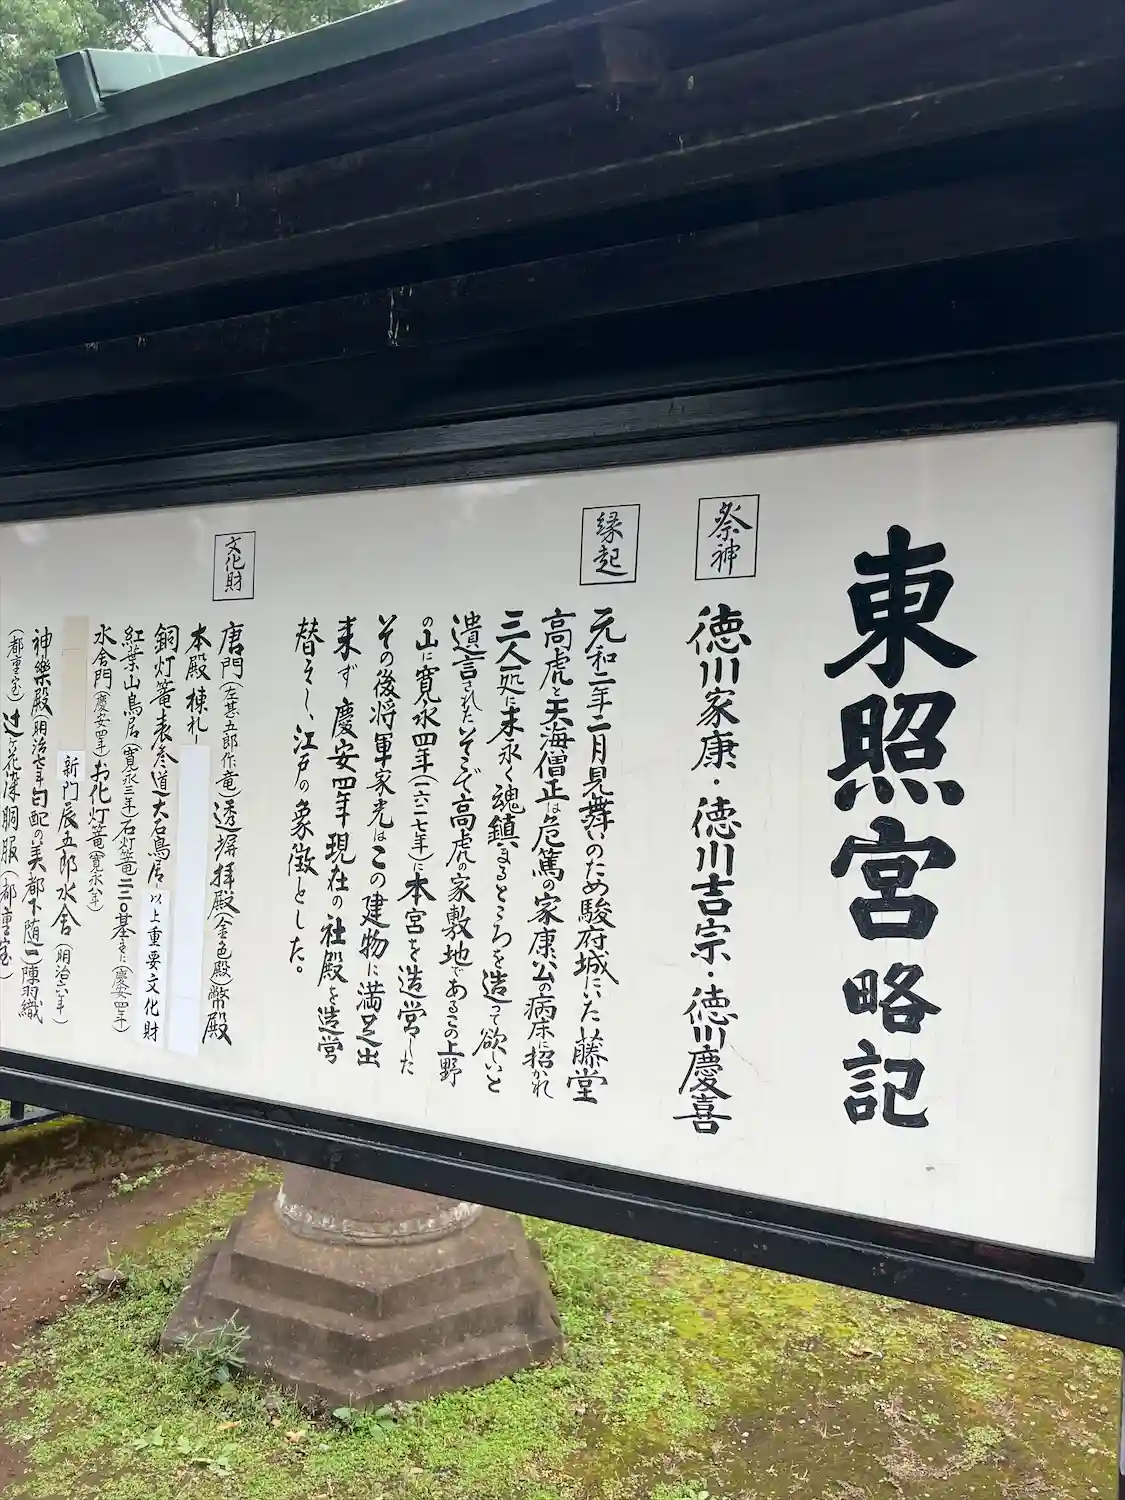 東照宮略記
祭神
徳川家康・徳川吉宗・徳川慶喜
縁起
元和二年二月見舞いのため駿府城にいた藤堂
高虎と天海僧正は危篤の家康公の病床に招かれ
三人一処に末永く魂鎮まるところを造って欲しいと
遺言されたそこで高虎の家敷地であるこの上野
の山に寛永四年(一六二七年)に本宮を造営した
その後将軍家光はこの建物に満足出
来ず慶安四年現在の社殿を造営
替えし、江戸の象徴とした。
文化財
唐門(左甚五郎作竜)透塀拝殿(金色殿)幣殿
本殿棟札
銅灯篭表参道大石鳥居 以上重要文化財
紅葉山鳥居(寛永三年)石灯篭二三〇基(慶安四年)
水舎門(慶安四年)お化灯篭(寛永八年)
新門辰五郎水舎(明治六年)
神樂殿(明治七年勾配の美都下随一)陣羽織
(都重宝)辻ヶ花染胴服(都重宝)